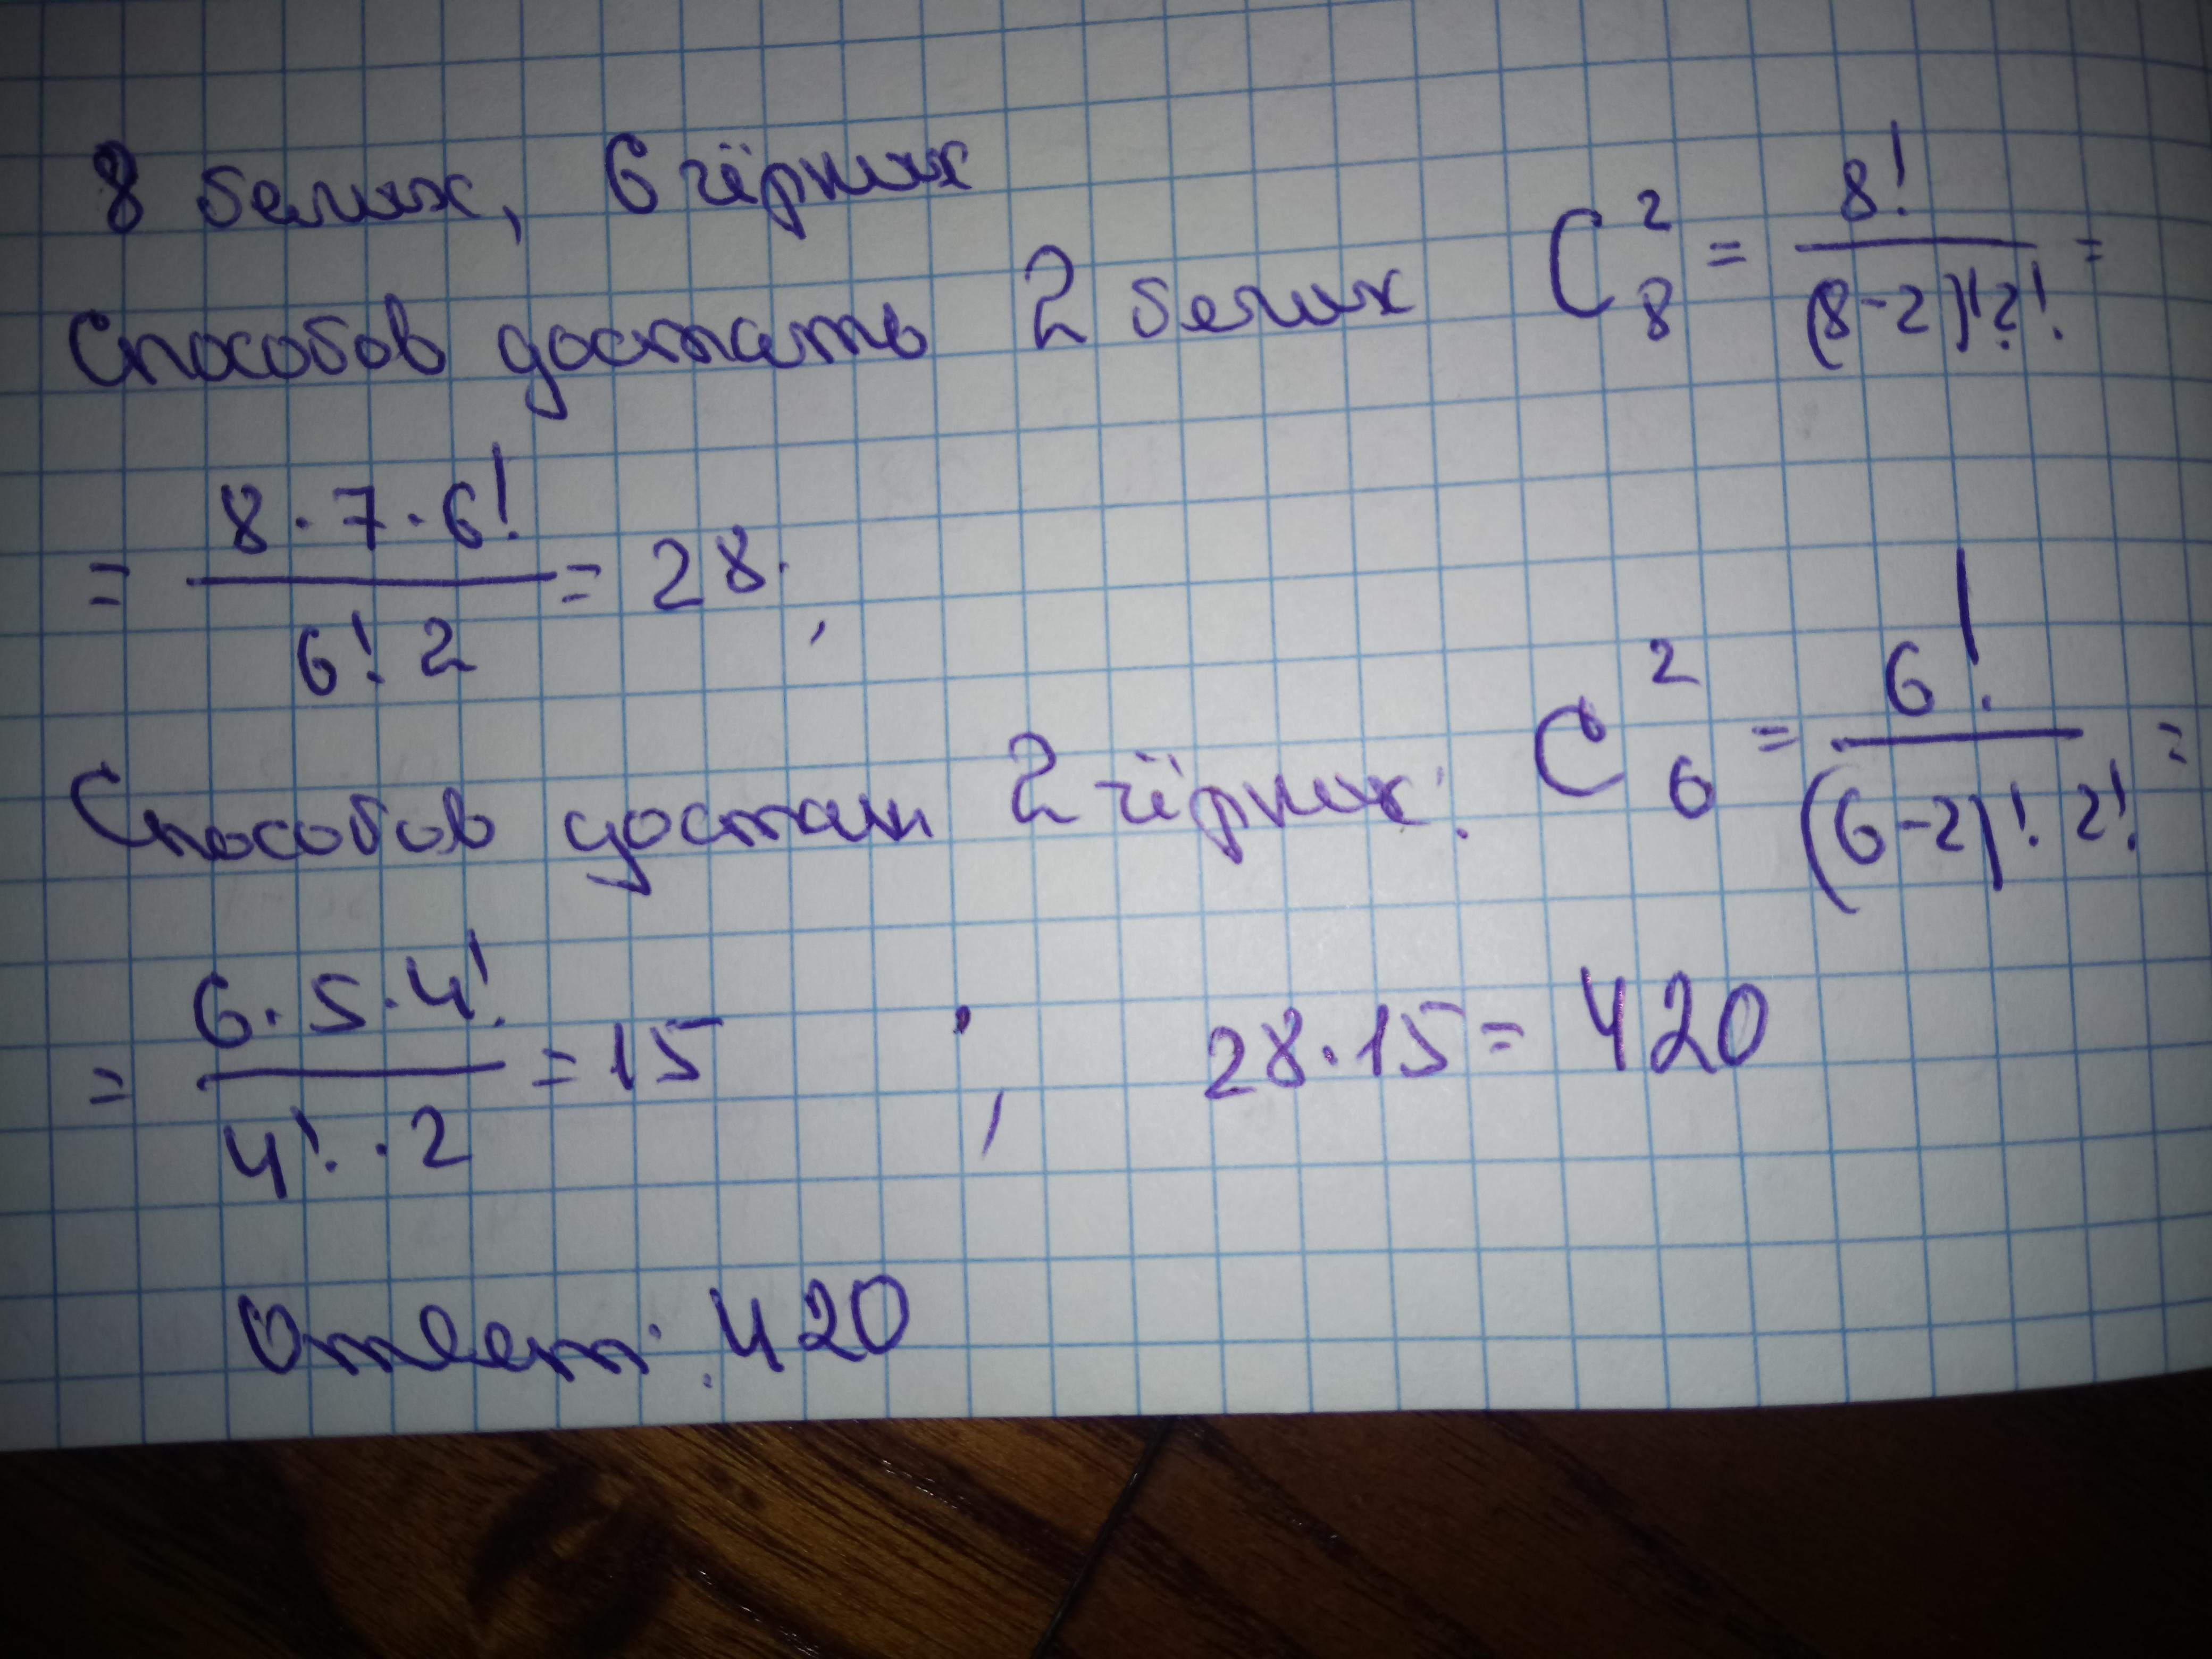 8 белых, 6 чёрных
Способов достать 2 белых C₈² = 8! / (8-2)! 2! =
= 8·7·6! / 6! 2 = 28;
Способов достать 2 чёрных: C₆² = 6! / (6-2)! 2! =
= 6·5·4! / 4!·2 = 15 ; 28·15 = 420
Ответ: 420